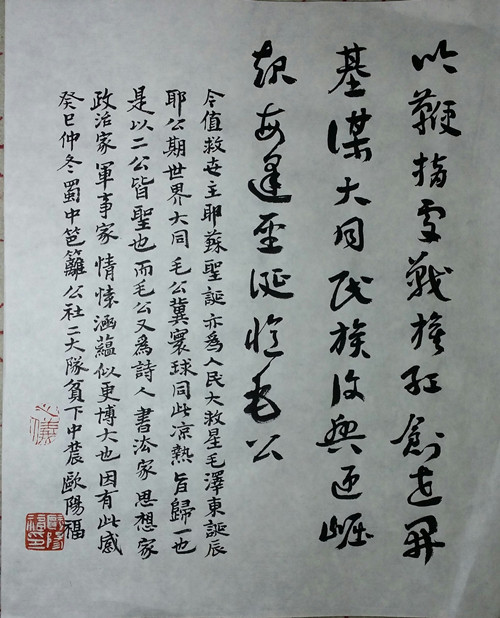 吟鞭指處戰旗紅創世開
基謀大同民族復興正崛
起每逢聖誕憶毛公
今值救世主耶蘇聖誕亦為人民大救星毛澤東誕辰
耶公期世界大同毛公冀寰球同此凉熱旨歸一也
是以二公皆聖也而毛公又為詩人書法家思想家
政治家軍事家情懷涵蘊似更博大也因有此感
癸巳仲冬蜀中笆籬公社二大隊貧下中農歐陽福
心儀
歐陽福印